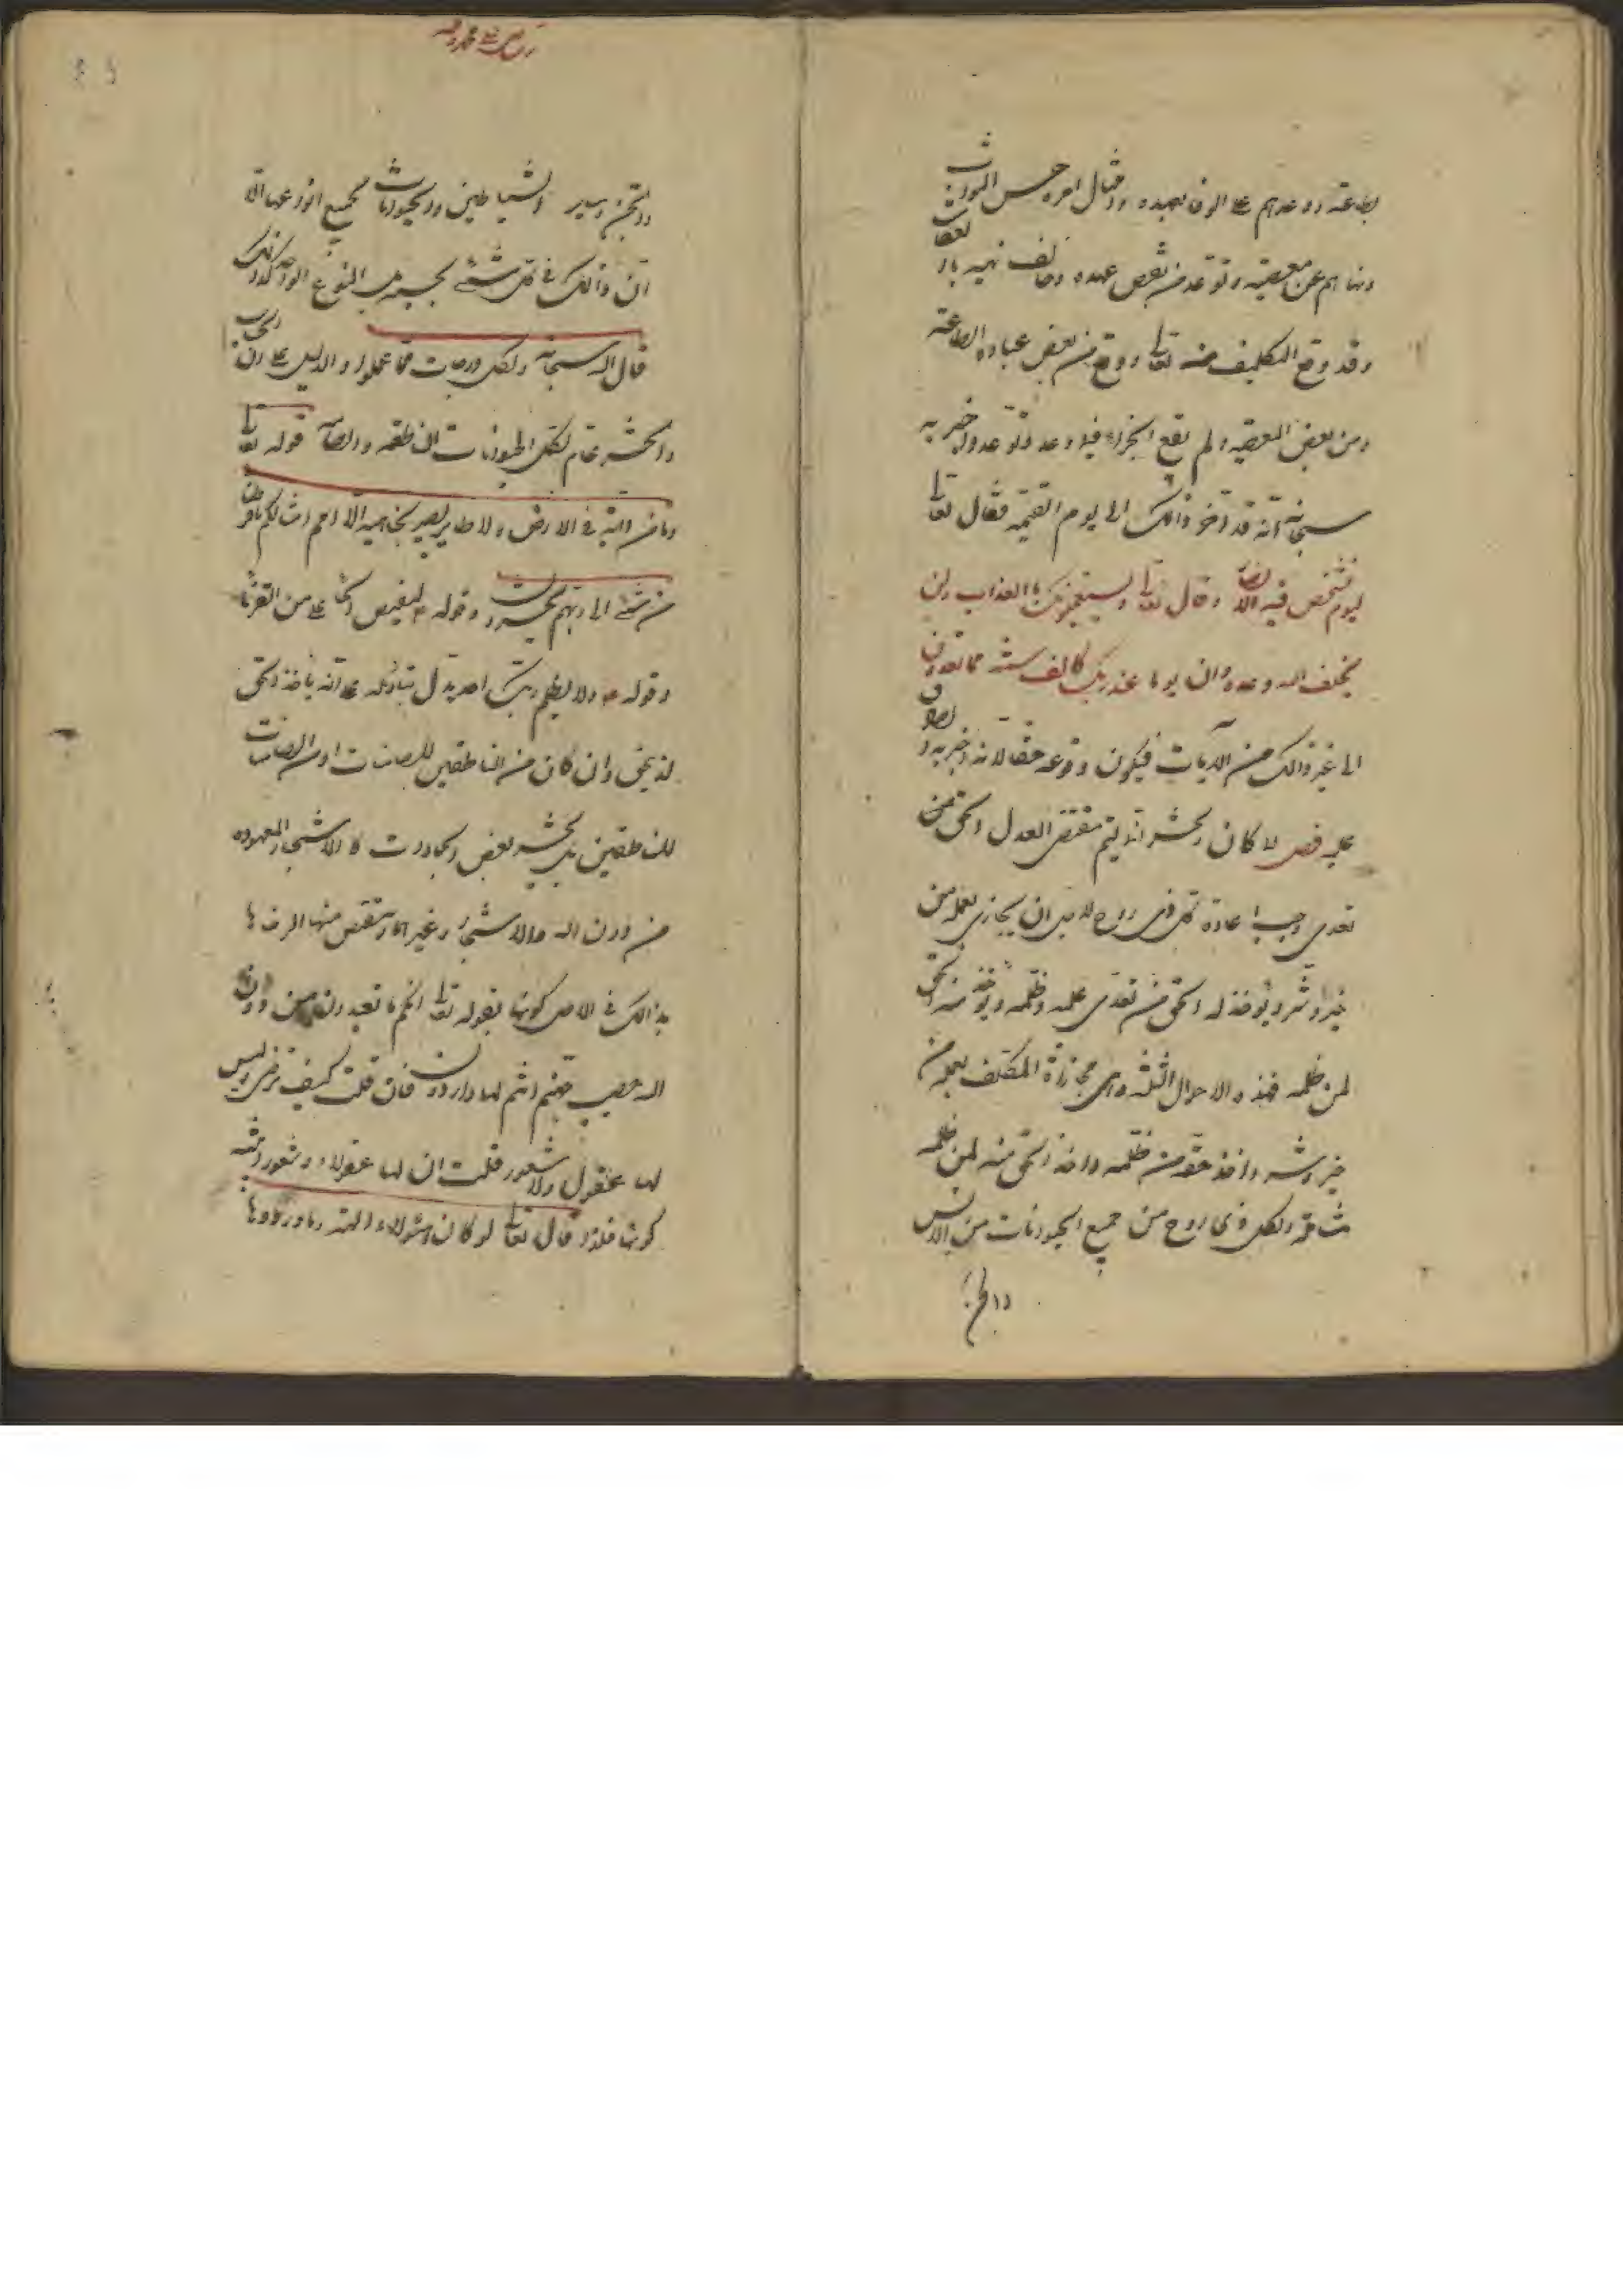 بطاعته ووعدهم على الوفاء بعهده وامتثال امره حسن الثواب
ونهاهم عن معصيته وتوعد من نقض عهده وخالف نهيه بالعقاب
وقد وقع التكليف منه تعالى ووقع من بعض عباده الطاعة
ومن بعض المعصيه ولم يقع الجزاء فيما وعد وتوعد واخبر به
سبحانه انه قد اخر ذالك الى يوم القيمه فقال تعالى
ليوم تشخص فيه الابصار وقال تعالى ويستعجلونك بالعذاب ولن
يخلف الله وعده وان يوما عند ربك كالف سنة مما تعدون
الى غير ذالك من الايات فيكون وقوعه حقا لانه اخبر به الصادق
عليه فصل لما كان الحشر انما ليتم مقتضى العدل الحق ممن
تعدى وجب اعادة كل ذى روح لابد ان يجازى بعمله من
خير وشر ويؤخذ له الحق ممن تعدى عليه وظلمه ويؤخذ منه الحق
لمن ظلمه فهذه الاحوال الثلثه اى مجازاة المكلف بعمله من
خير وشر واخذ حقه ممن ظلمه واخذ الحق منه لمن ظلمه
شاملة لكل ذى روح من جميع الحيوانات من الانس
والجن
والجن وساير الشياطين والحيوانات بجميع انواعها الا
ان ذالك فى كل شئ بحسبه من النوع الواحد كذالك
قال الله سبحانه ولكل درجات مما عملوا والدليل على ان الحساب
والحشر عام لكل الحيوانات الناطقه والصامته قوله تعالى
وما من دابة فى الارض ولا طاير يطير بجناحيه الا امم امثالكم ما فرطنا
من شئ الى ربهم يحشرون وقوله ع ليقتص للجماء من القرناء
وقوله ع ولا يظلم ربك احدا يدل بتاويله على انه ياخذ الحق
لذى حق وان كان من الناطقين للصامتات او من الصامتات
للناطقين بل يحشر بعض الجمادات كالاشجار المعبوده
من دون الله والاحجار وغيرها ويقتص منها لرضاها
بذالك فى الاصل كونها بقوله تعالى انكم وما تعبدون من دون
الله حصب جهنم انتم لها واردون فان قلت كيف ترضى وليس
لها عقول ولا شعور قلت ان لها عقولا وشعورا بنسبة
كونها فلذا قال تعالى لو كان هؤلاء الهة ما وردوها